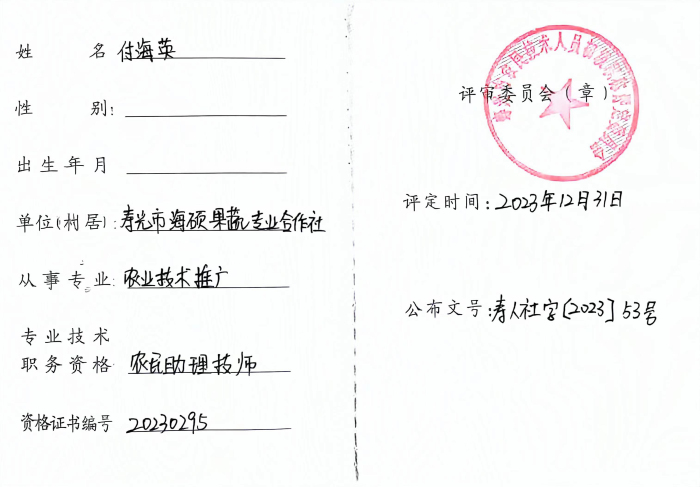 姓 名 付海英
性 别:
出生年月
单位(村居):寿光市海硕果蔬专业合作社
从事专业:农业技术推广
专业技术
职务资格 农民助理技师
资格证书编号 20230295
评审委员会(章)
评定时间:2023年12月31日
公布文号:寿人社字[2023]53号